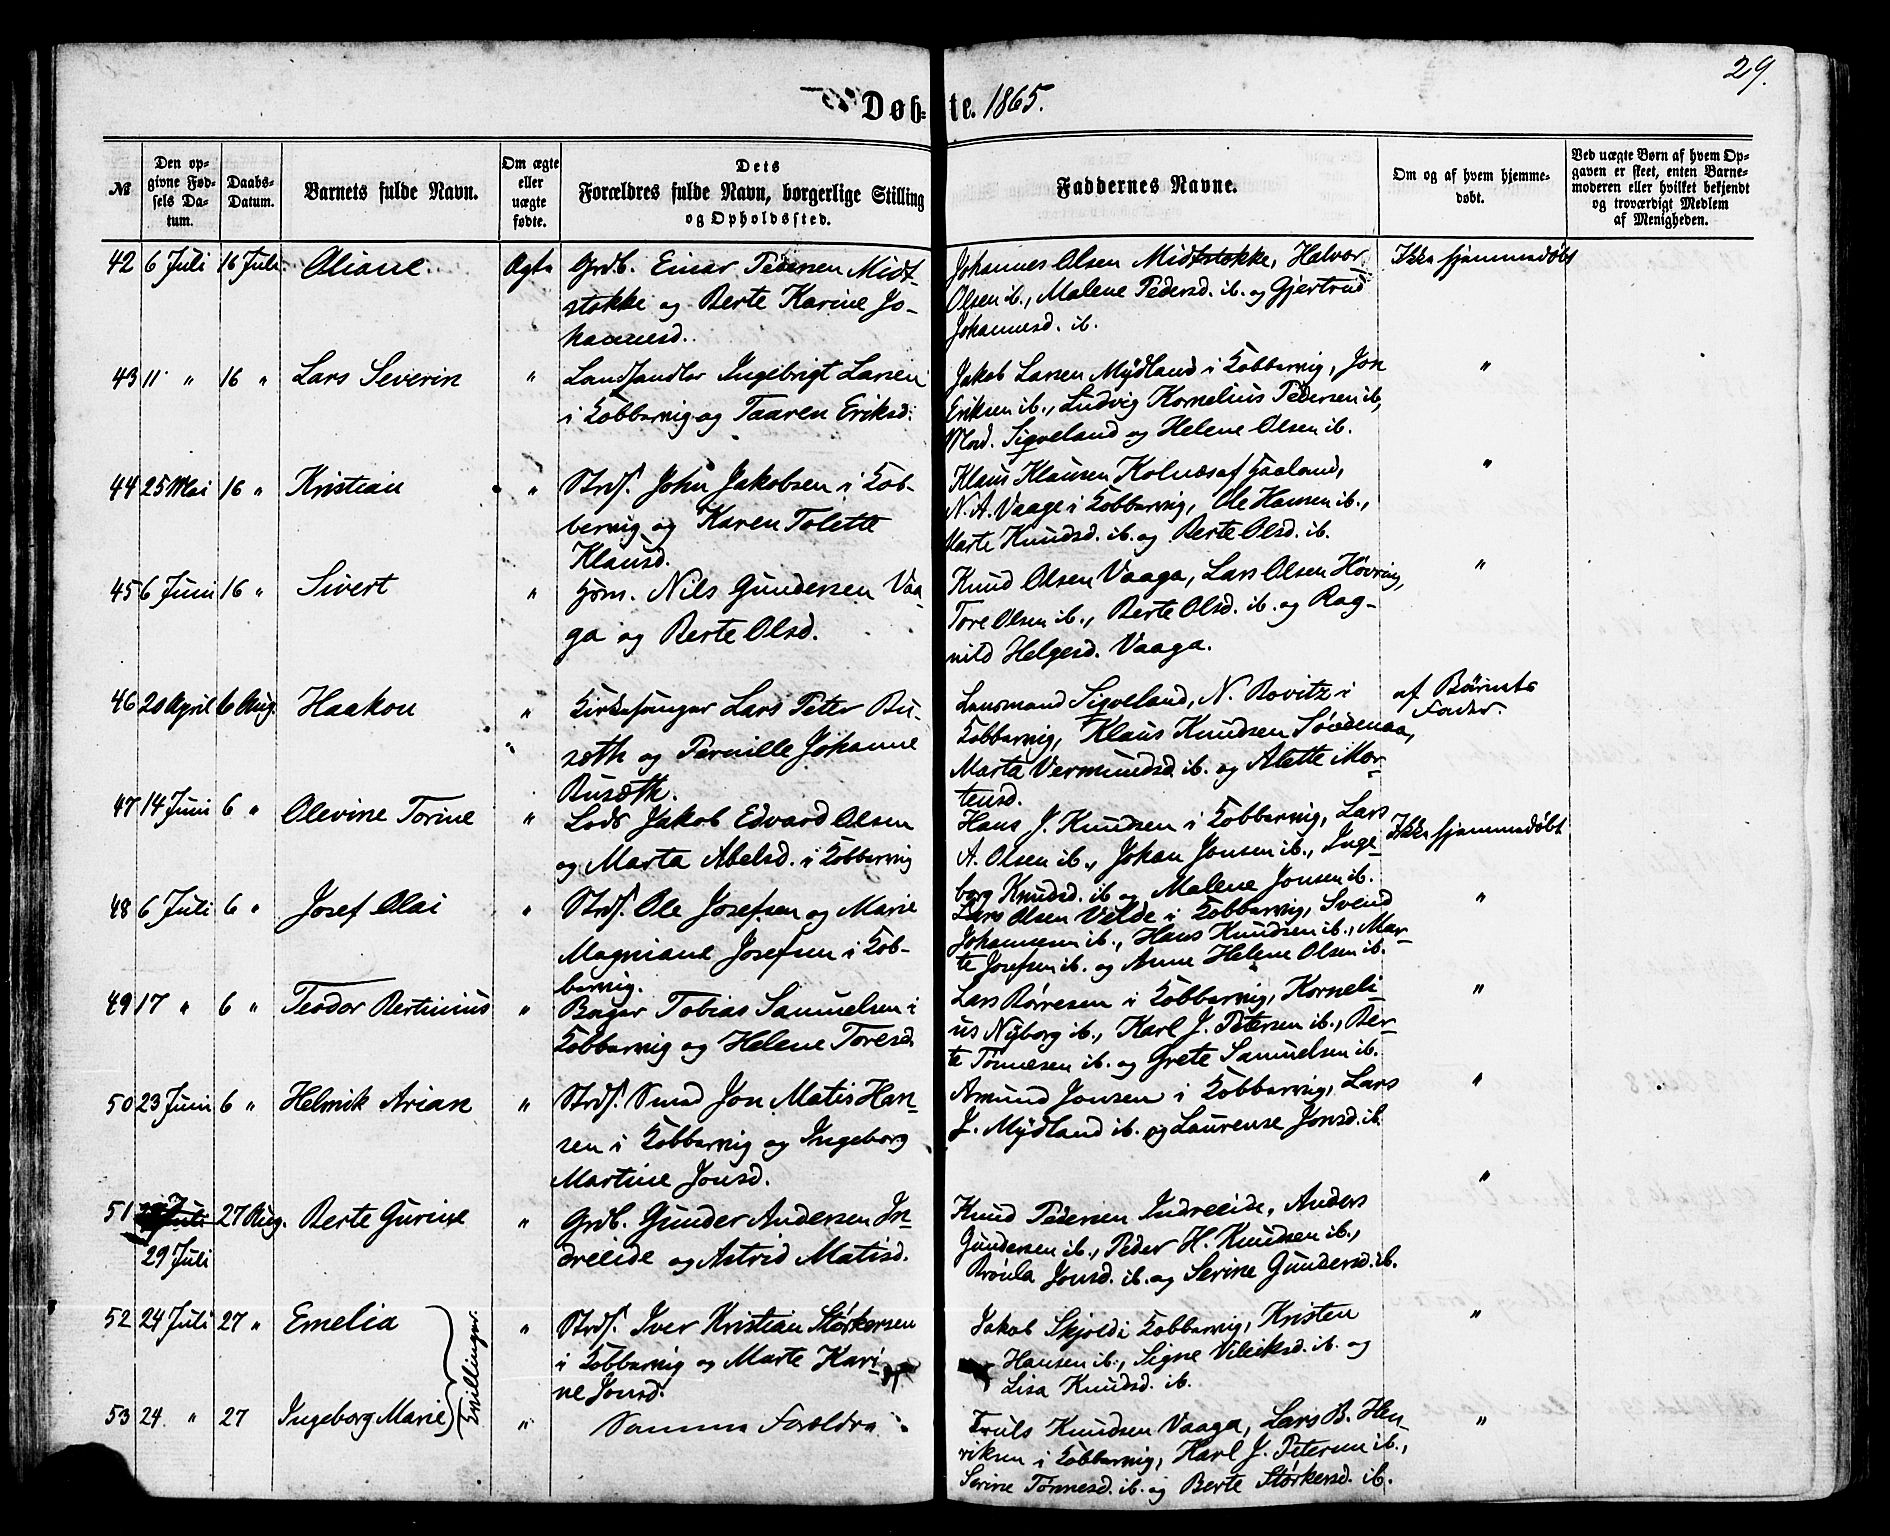 29.
Døbte. 1865.
№
Den op-
givne Fød-
sels Da-
tum.
Daabs-
Datum.
Barnets fulde Navn.
Om ægte
eller
uægte
fødte.
Dets
Forældres fulde Navn, borgerlige Stilling
og Opholdssted.
Faddernes Navne.
Om og af hvem hjemme-
døbt.
Ved uægte Børn af hvem Op-
gaven er skeet, enten Barne-
moderen eller hvilket bekjendt
og troværdigt Medlem
af Menigheden.
42 6 Juli 16 Juli. Oliane Ægte
Grdb. Einar Pedersen Midt-
stokke og Berte Karine Jo-
hannesd.
Johannes Olsen Midtstokke, Halvor
Olsen ib., Malene Pedersd. ib. og Gjertrud
Johannesd. ib.
Ikke hjemmedøbt
43 11 " 16 " Lars Severin "
Landhandler Ingebrigt Larsen
i Kobbervig og Taaren Eriksd.
Jakob Larsen Mÿdland i Kobbervig, Jon
Eriksen ib., Ludvig Kornelius Pedersen ib,
Mad. Sigveland og Helene Olsen ib.
"
44 25 Mai 16 " Kristian "
Strds. John Jakobsen i Kob-
bervig og Karen Tolette
Klausd.
Klaus Klausen Kolnæs af Haaland,
N. A. Vaage i Kobbervig, Ole Hansen ib.,
Marte Knudsd. ib. og Berte Olsd. ib.
"
45 6 Juni 16 " Sivert "
Hom. Nils Gundersen Vaa-
ga og Berte Olsd.
Knud Olsen Vaaga, Lars Olsen Høvring,
Tore Olsen ib., Berte Olsd. ib. og Rag-
nild Helgesd. Vaaga.
"
46 20 April 6 Aug. Haakon "
Kirkesanger Lars Peter Bu-
sæth og Pernille Johanne
Busæth.
Lensmand Sigveland, N. Bovitz i
Kobbervig, Klaus Knudsen Sørdenaa,
Marta Vermundsd. ib. og Alette Mor-
tensd.
af Barnets
Fader.
47 14 Juni 6 " Olevine Torine "
Lods Jakob Edvard Olsen
og Marta Abelsd. i Kobbervig
Hans J. Knudsen i Kobbervig, Lars
A. Olsen ib., Johan Jonsen ib., Inge-
borg Knudsd. ib og Malene Jonsen ib.
Ikke hjemmedøbt
48 6 Juli 6 " Josef Olai "
Strds. Ole Josefsen og Marie
Magniane Josefsen i Kob-
bervig.
Lars Olsen Velde i Kobbervig, Svend
Johannesen ib., Hans Knudsen ib., Mar-
te Josefsen ib. og Anne Helene Olsen ib.
"
49 17 " 6 " Teodor Bertinius "
Bager Tobias Samuelsen i
Kobbervig og Helene Toresd.
Lars Børresen i Kobbervig, Korneli-
us Nÿborg ib., Karl J. Petersen ib., Ber-
te Tønnesen ib. og Grete Samuelsen ib.
"
50 23 Juni 6 " Helmik Arian "
Strds. Smed Jon Matis Han-
sen i Kobbervig og Ingeborg
Martine Jonsd.
Amund Jonsen i Kobbervig, Lars
J. Mÿdland ib. og Laurense Jonsd. ib.
"
51 Juli 27 Aug. Berte Gurine "
29 Juli
Grdb. Gunder Andersen In-
dreeide og Astrid Matisd.
Knud Pedersen Indreeide, Anders
Gundersen ib., Peder H. Knudsen ib.,
Brönla Jonsd. ib. og Serine Gundersd. ib.
52 24 Juli 27 " Emelia "
Tvillinger.
Strds. Iver Kristian Størkersen
i Kobbervig og Marte Kari-
ne Jonsd.
Jakob Skjold i Kobbervig, Kristen
Hansen ib., Signe Vileiksd. ib. og
Lisa Knudsd. ib.
"
53 24. " 27 Ingeborg Marie "
Samme Forældre
Truls Knudsen Vaaga, Lars B. Hen-
riksen i Kobbervig, Karl J. Petersen ib.,
Serine Tønnesd. ib. og Berte Størkersd. ib.
"